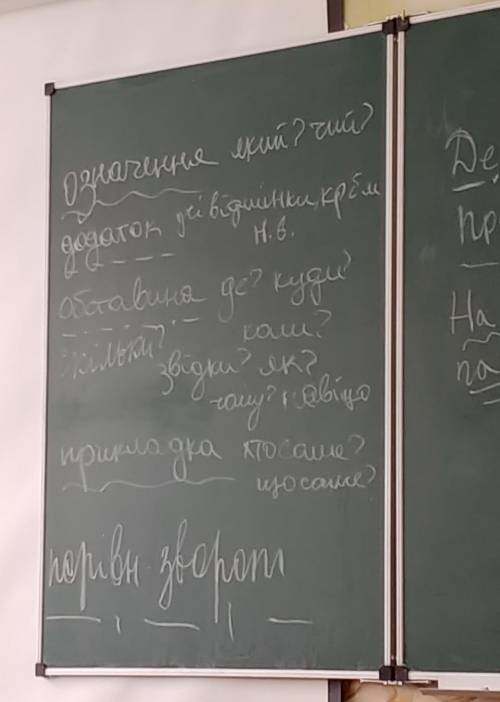 означення який? чий?
додаток усі відмінки, крім
Н.в.
обставина де? куди?
коли?
скільки?
звідки? як?
чому? навіщо
прикладка хто саме?
що саме?
порівн. зворот
Де
пр
На
па